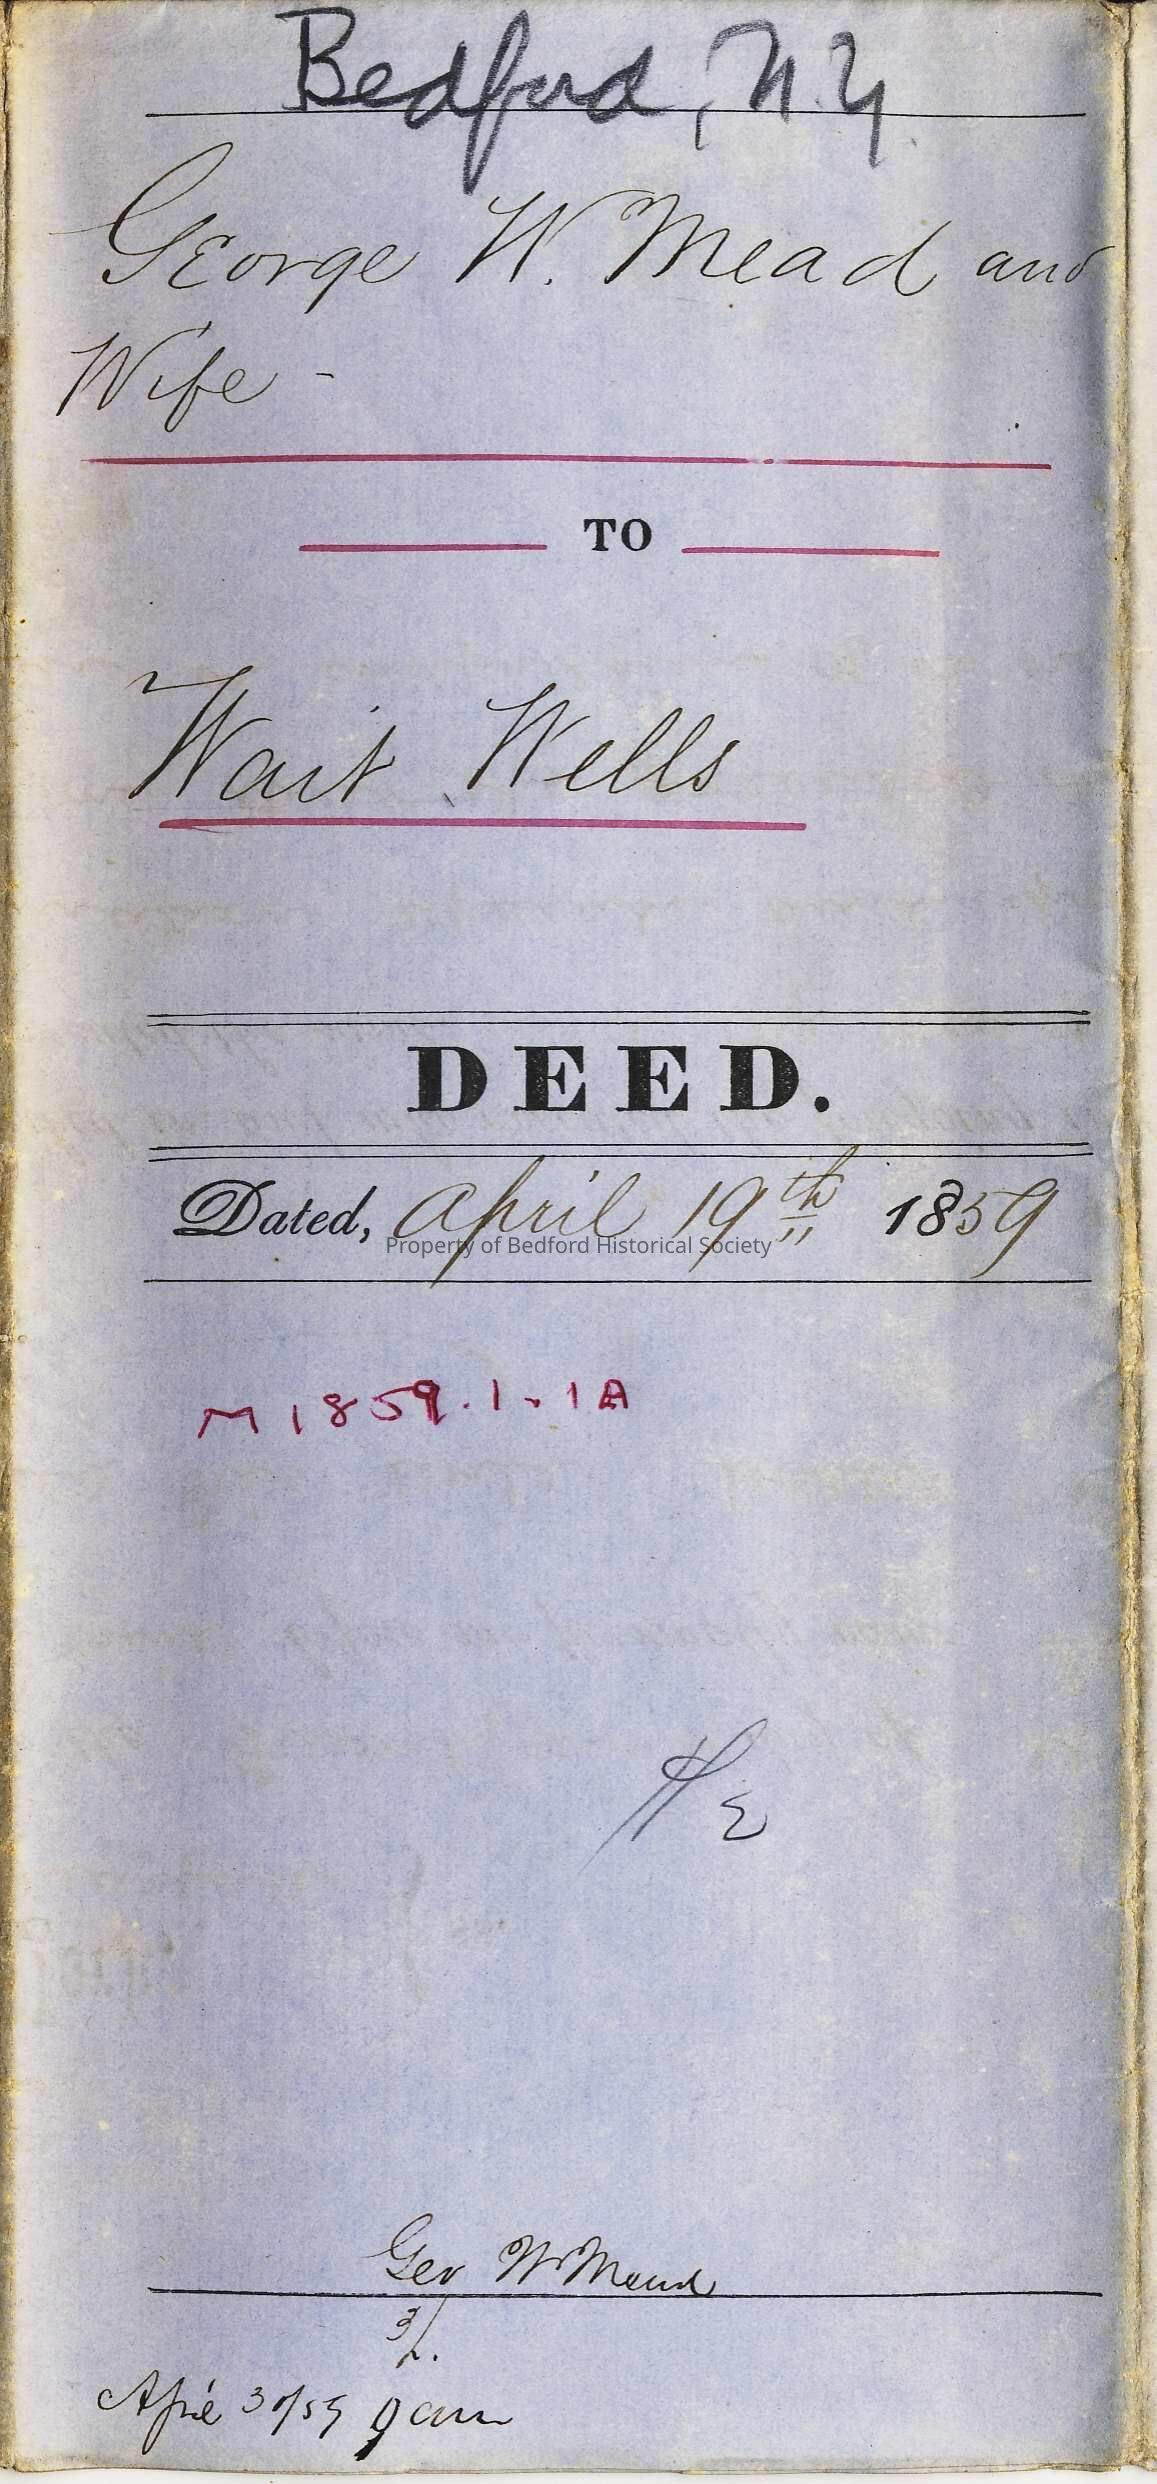 Bedford, N.Y.
George W. Mead and
Wife -
TO
Wait Wells
DEED.
Dated, April 19th 1859
Property of Bedford Historical Society
M 1859.1.1A
Geo W Mead
3/.
April 30/59 9 am